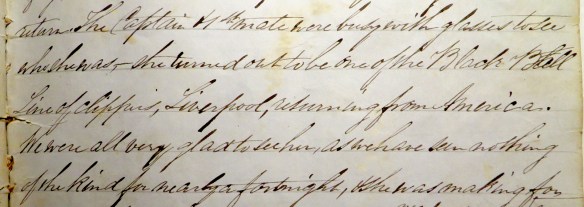 return. The Captain & 1st mate were busy with glasses to see
who she was, – she turned out to be one of the Black Ball
Line of clippers, Liverpool, returning from America.
We were all very glad to see her, as we have seen nothing
of the kind for nearly a fortnight, & she was making for